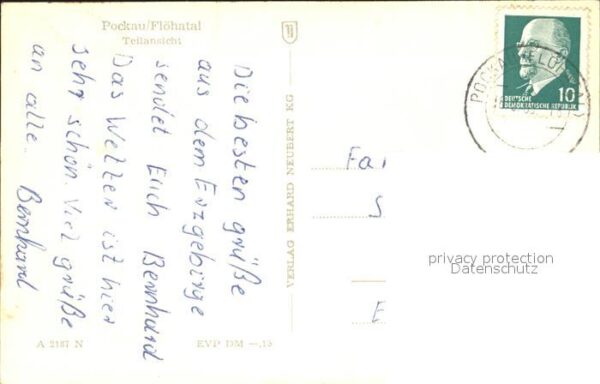 Pockau/Flöhatal
Teilansicht
Die besten grüße
aus dem Erzgebirge
sendet Euch Bernhard
Das Wetter ist hier
sehr schön. Viel grüße
an alle. Bernhard
A 2187 N
EVP DM —,15
VERLAG ERHARD NEUBERT KG
DEUTSCHE
DEMOKRATISCHE REPUBLIK
10
POCKAU
Fa
S
E
privacy protection
Datenschutz